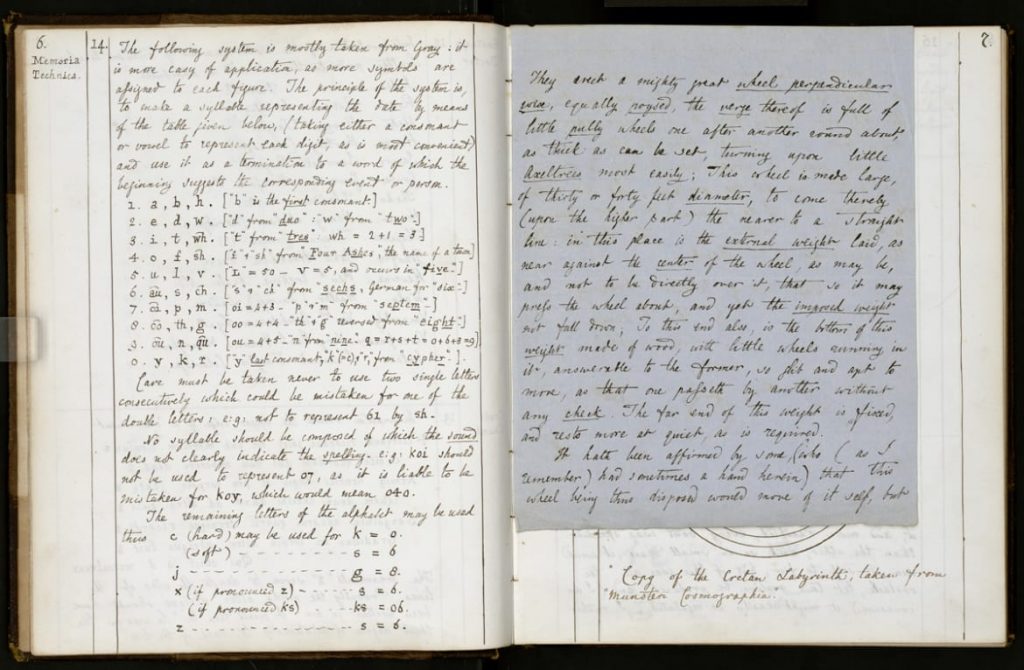 6.
Memoria
Technica.
14.
The following system is mostly taken from Gray: it
is more easy of application, as more symbols are
assigned to each figure. The principle of the system is,
to make a syllable representing the date by means
of the table given below, (taking either a consonant
or vowel to represent each digit, as is most convenient)
and use it as a termination to a word of which the
beginning suggests the corresponding event or person.
1. a, b, h. ["b" is the first consonant.]
2. e, d, w. ["d" from "duo": "w" from "two".]
3. i, t, wh. ["t" from "tres": wh = 2+1 = 3]
4. o, f, sh. ["f" & "sh" from Four Ashes, the name of a town]
5. u, l, v. ["L" = 50 - V = 5, and occurs in "five".]
6. au, s, ch. ["s" & "ch" from "sechs", German for "six".]
7. oi, p, m. [oi = 4+3 - "p" & "m" from "septem".]
8. oo, th, g. [oo = 4+4 - "th" & "g" reversed from "eight".]
9. ou, n, qu. [ou = 4+5 - n from "nine".
0. y, k, r. ["y" last consonant, k (=c), & r, from "cypher".]
Care must be taken never to use two single letters
consecutively which could be mistaken for one of the
double letters: e:g: not to represent 61 by sh.
No syllable should be composed of which the sound
does not clearly indicate the spelling. e:g: koi should
not be used to represent 07, as it is liable to be
mistaken for koy, which would mean 040.
The remaining letters of the alphabet may be used
thus c (hard) may be used for k = 0.
(soft) - - - - - - - - s = 6
j - - - - - - - - g = 8.
x (if pronounced z) - - - s = 6.
(if pronounced ks) - - - ks = 06.
z - - - - - - - - s = 6.
7.
They erect a mighty great wheel perpendicular
wise, equally poysed, the verge thereof is full of
little pully wheels one after another round about,
as thick as can be set, turning upon little
Axeltrees most easily; This wheel is made large,
of thirty or forty feet diameter, to come thereby
(upon the higher part) the nearer to a straight
line: in this place is the external weight laid, as
near against the center of the wheel, as may be,
and not to be directly over it, that so it may
press the wheel about, and yet the imposed weight
not fall down; To this end also, is the bottom of this
weight made of wood, with little wheels running in
it, answerable to the former, so fit and apt to
move, as that one passeth by another without
any check. The far end of this weight is fixed,
and rests more at quiet, as is required.
It hath been affirmed by some (who (as I
remember) had sometimes a hand herein) that this
wheel being thus disposed would move of it self, but
Copy of the Cretan Labyrinth, taken from
"Munsteri Cosmographia."